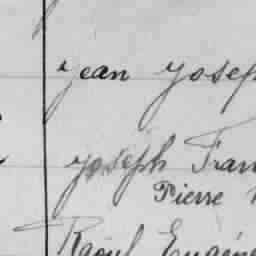 jean Joseph
Joseph Fran
Pierre
Raoul Eugène